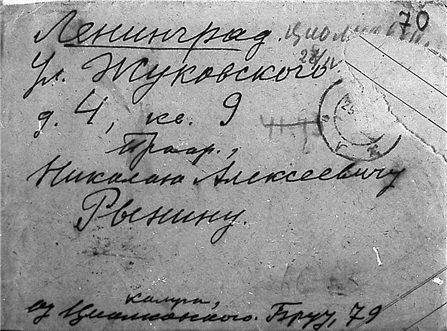 70
Ленинград.
Ул. Жуковского
д. 4, кв. 9
Проф.,
Николаю Алексеевичу
Рынину.
Калуга,
из Циолковского. Брут, 79